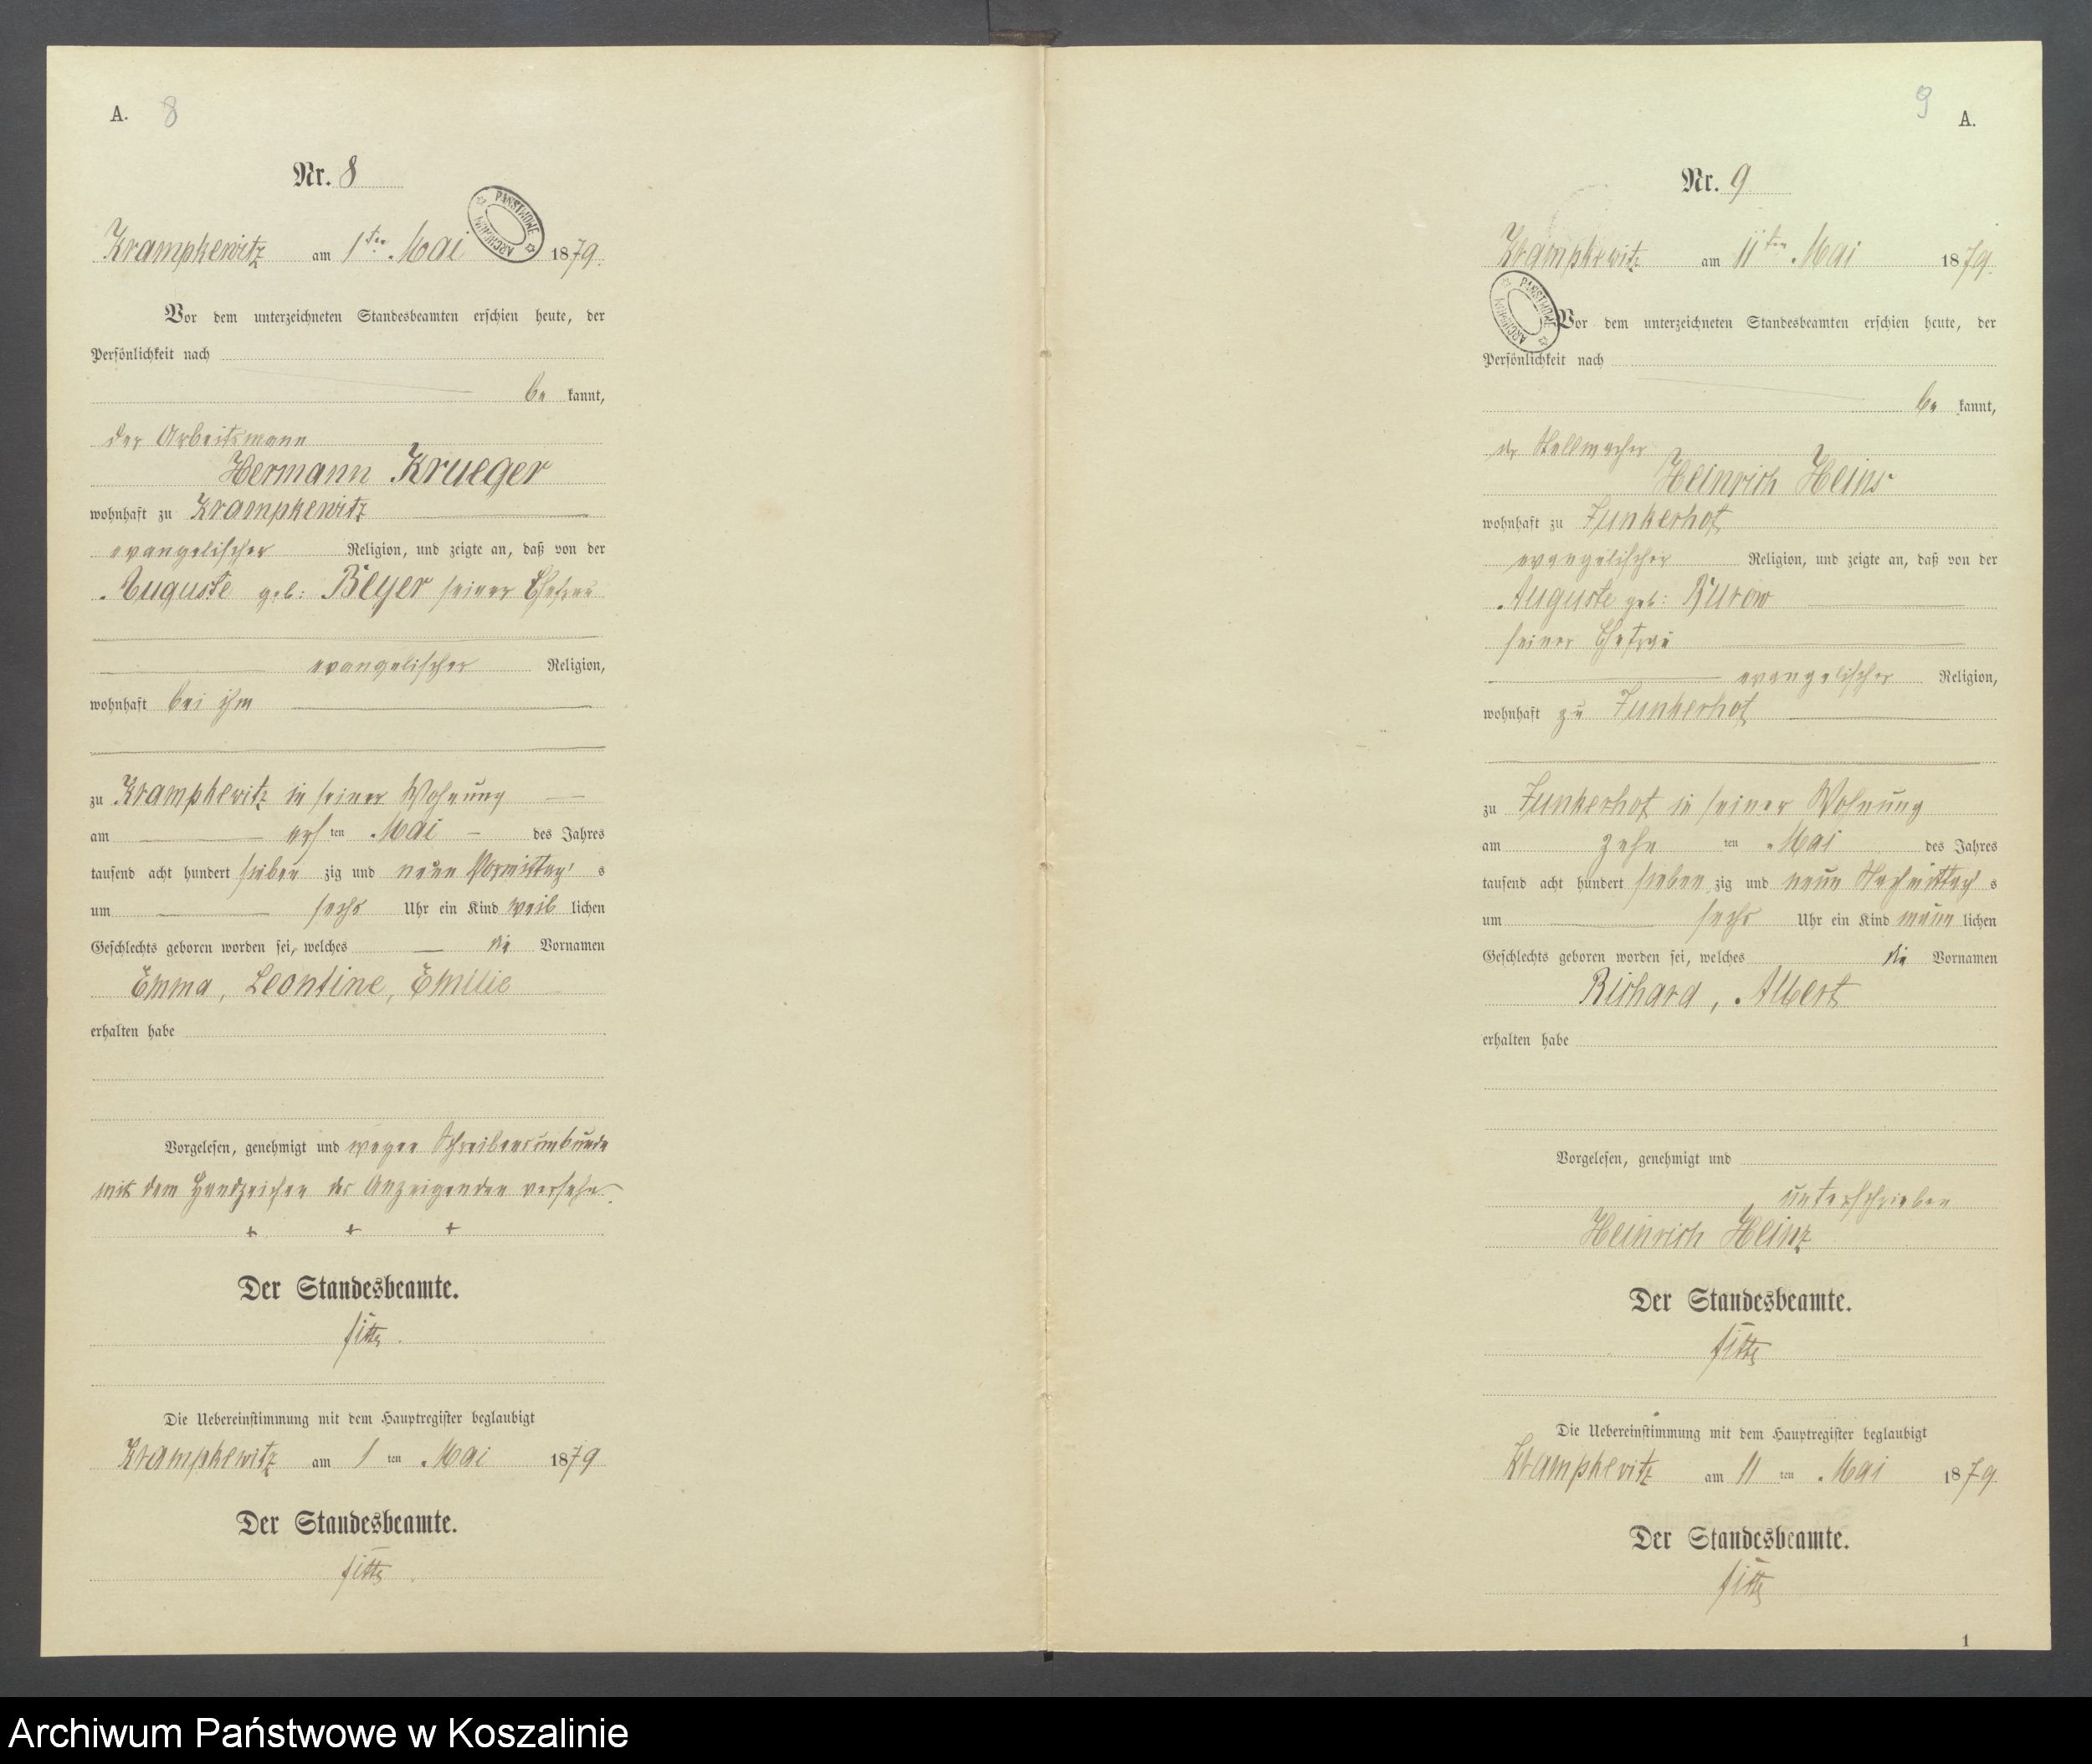 A. 8
Nr. 8
PAŃSTWOWE ARCHIWUM
Krampkewitz am 1ten Mai 1879.
Vor dem unterzeichneten Standesbeamten erschien heute, der
Persönlichkeit nach
be kannt,
der Arbeitsmann
Hermann Krueger
wohnhaft zu Krampkewitz
evangelischer Religion, und zeigte an, daß von der
Auguste geb: Beyer seiner Ehefrau
evangelischer Religion,
wohnhaft bei ihm
zu Krampkewitz in seiner Wohnung
am ersten Mai des Jahres
tausend acht hundert sieben zig und neun Vormittags
um sechs Uhr ein Kind weib lichen
Geschlechts geboren worden sei, welches die Vornamen
Emma, Leontine, Emilie
erhalten habe
Vorgelesen, genehmigt und wegen Schreibensunkunde
mit dem Handzeichen des Anzeigenden versehn.
+ + +
Der Standesbeamte.
Die Uebereinstimmung mit dem Hauptregister beglaubigt
Krampkewitz am 1 ten Mai 1879
Der Standesbeamte.
9 A.
Nr. 9
Krampkewitz am 11ten Mai 1879.
PAŃSTWOWE ARCHIWUM
Vor dem unterzeichneten Standesbeamten erschien heute, der
Persönlichkeit nach
be kannt,
der Stellmacher
Heinrich Heins
wohnhaft zu Junkerhof
evangelischer Religion, und zeigte an, daß von der
Auguste geb: Burow
seiner Ehefrau
evangelischer Religion,
wohnhaft zu Junkerhof
zu Junkerhof in seiner Wohnung
am zehn ten Mai des Jahres
tausend acht hundert sieben zig und neun Nachmittags
um sechs Uhr ein Kind männ lichen
Geschlechts geboren worden sei, welches die Vornamen
Richard, Albert
erhalten habe
Vorgelesen, genehmigt und
unterschrieben
Heinrich Heinz
Der Standesbeamte.
Die Uebereinstimmung mit dem Hauptregister beglaubigt
Krampkewitz am 11 ten Mai 1879.
Der Standesbeamte.
1
Archiwum Państwowe w Koszalinie